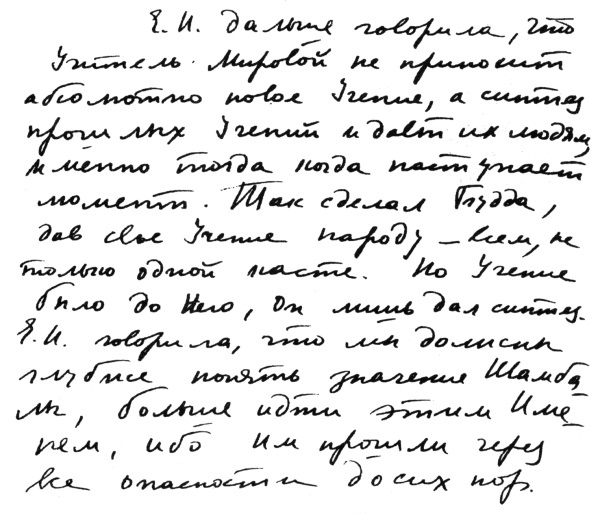 Е. И. дальше говорила, что
Учитель Мировой не приносит
абсолютно новое Учение, а синтез
прошлых Учений и даёт их людям,
именно тогда когда наступает
момент. Так сделал Будда,
дав свое Учение народу – всем, не
только одной касте. Но Учение
было до Него, Он лишь дал синтез.
Е. И. говорила, что мы должны
глубже понять значение Шамба-
лы, больше идти этим Име-
нем, ибо им прошли через
все опасности до сих пор.